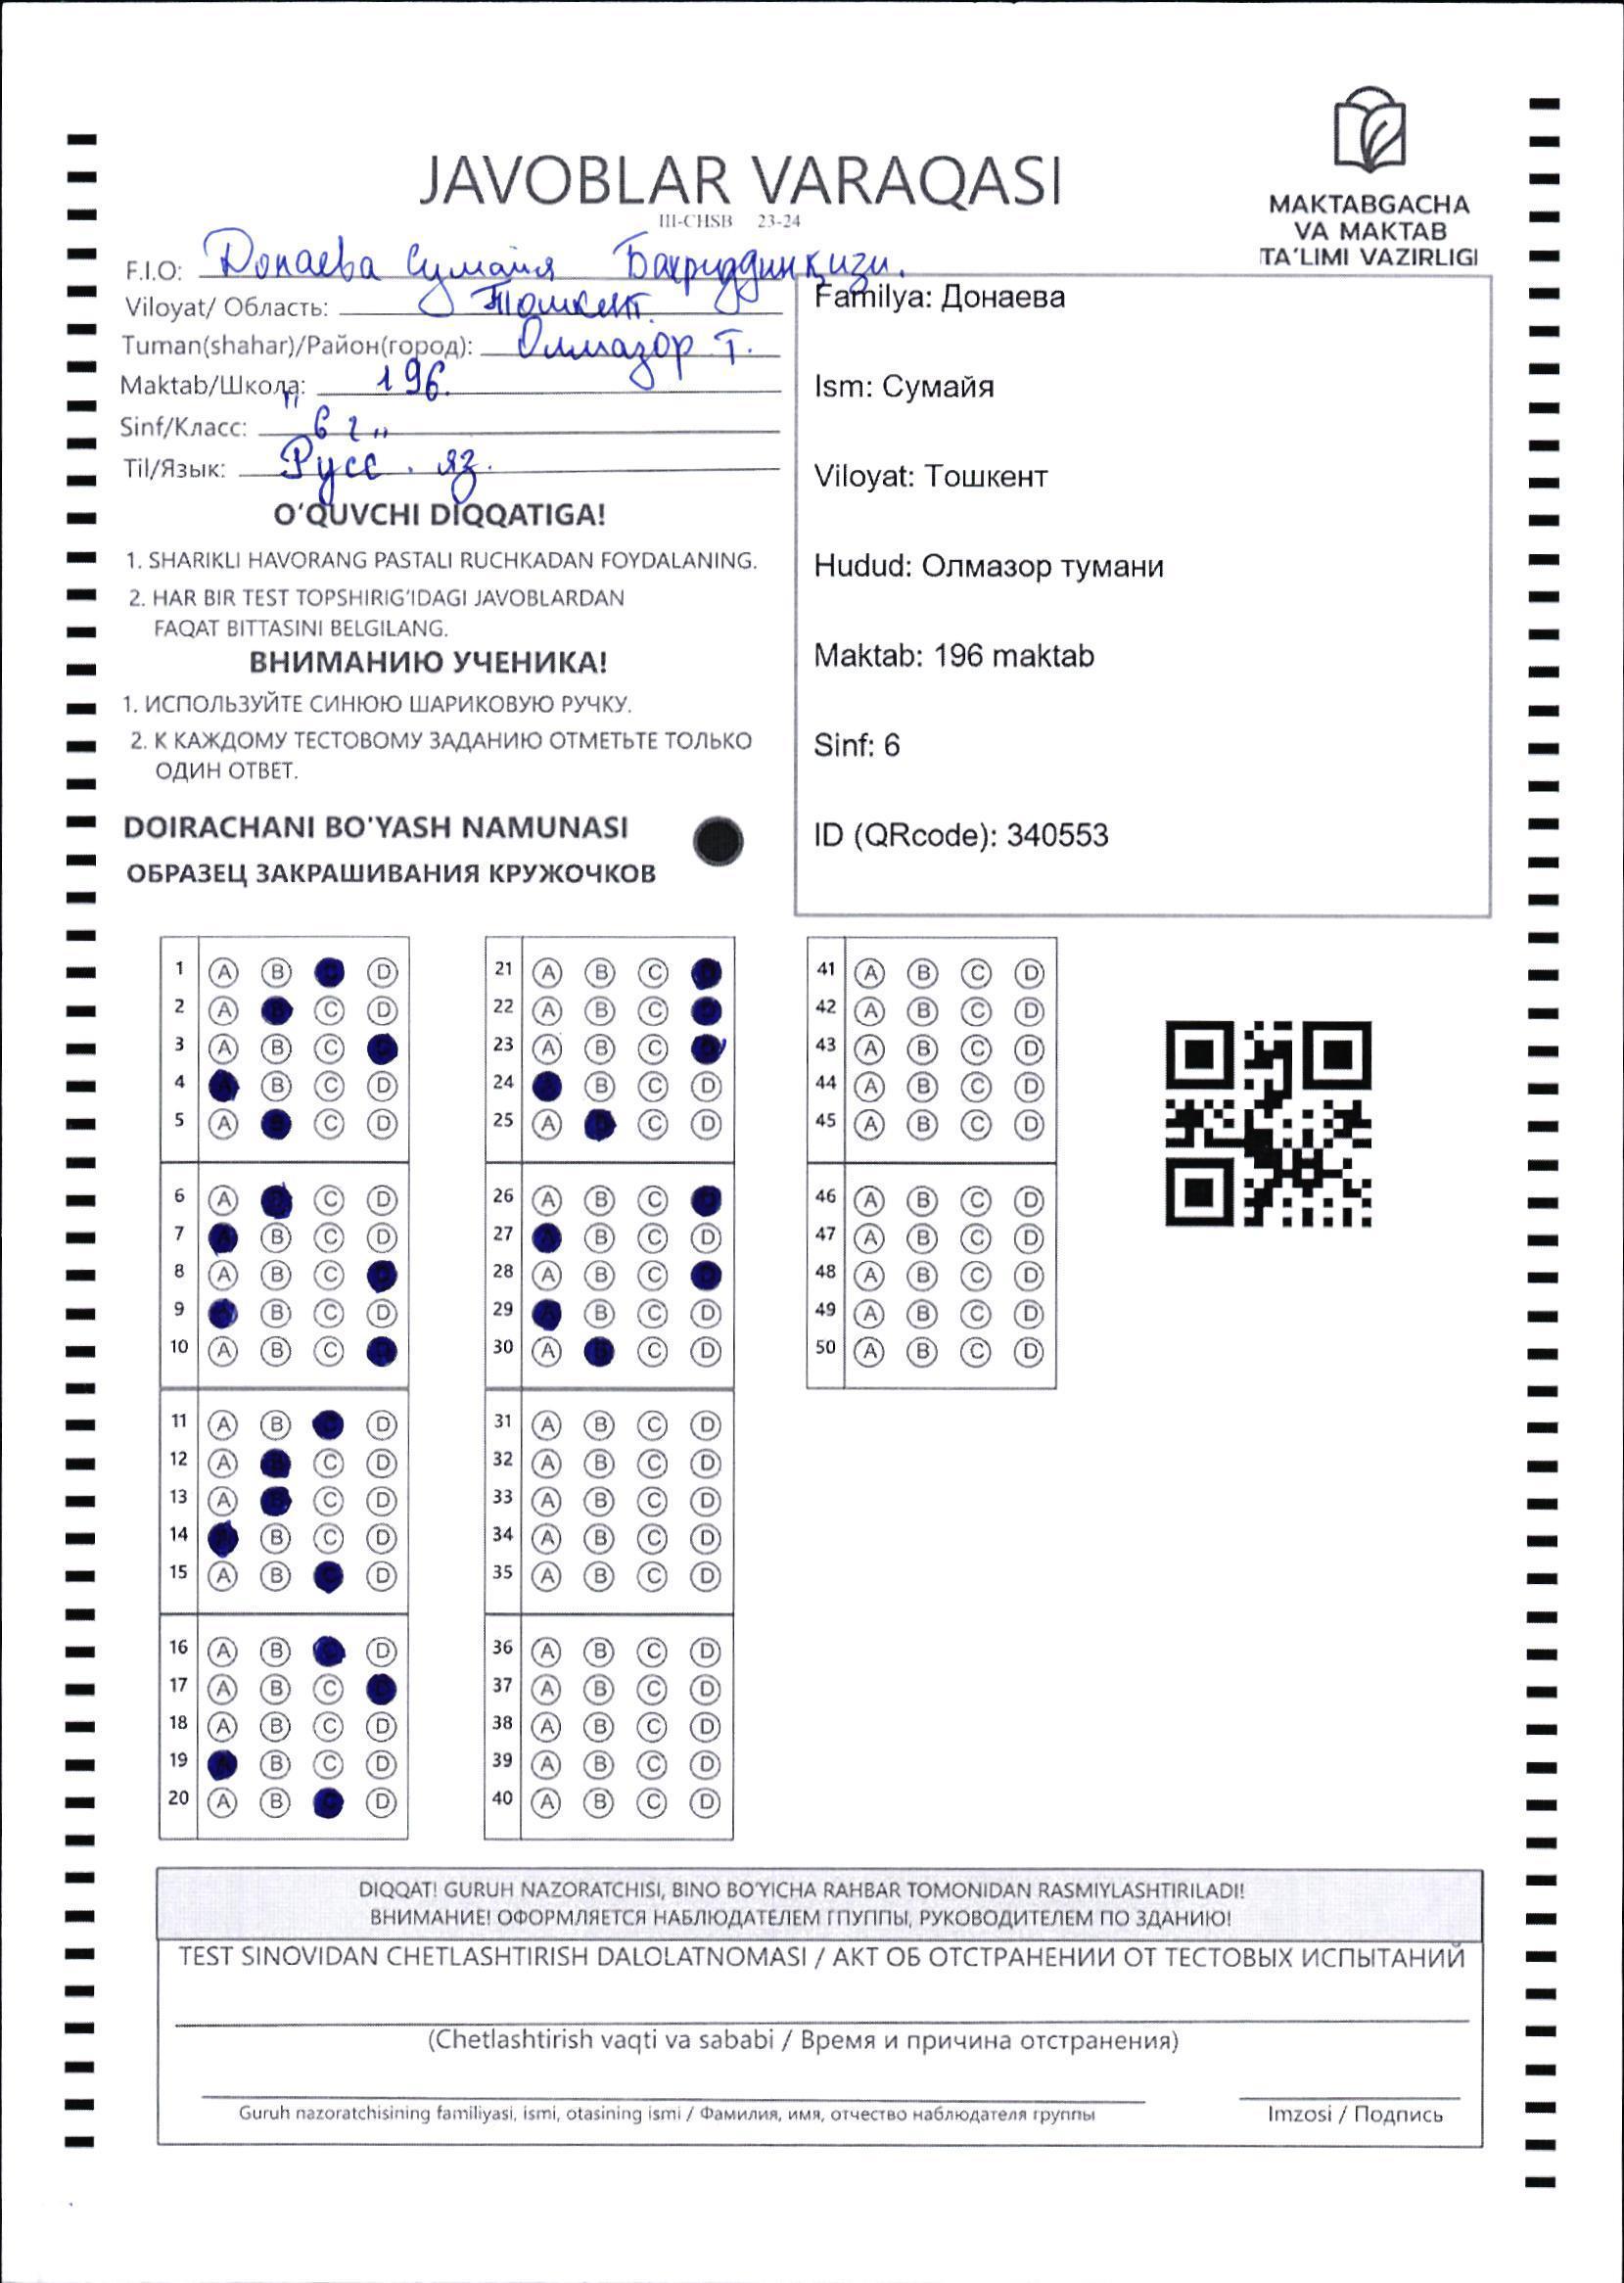 JAVOBLAR VARAQASI
III-CHSB 23-24
MAKTABGACHA
VA MAKTAB
TA'LIMI VAZIRLIGI
F.I.O: Донаева Сумайя Бахриддин қизи.
Viloyat/ Область: Тошкент.
Tuman(shahar)/Район(город): Олмазор т.
Maktab/Школа: 196.
Sinf/Класс: "6 г„
Til/Язык: Русс. яз.
O'QUVCHI DIQQATIGA!
1. SHARIKLI HAVORANG PASTALI RUCHKADAN FOYDALANING.
2. HAR BIR TEST TOPSHIRIG'IDAGI JAVOBLARDAN
FAQAT BITTASINI BELGILANG.
ВНИМАНИЮ УЧЕНИКА!
1. ИСПОЛЬЗУЙТЕ СИНЮЮ ШАРИКОВУЮ РУЧКУ.
2. К КАЖДОМУ ТЕСТОВОМУ ЗАДАНИЮ ОТМЕТЬТЕ ТОЛЬКО
ОДИН ОТВЕТ.
DOIRACHANI BO'YASH NAMUNASI
ОБРАЗЕЦ ЗАКРАШИВАНИЯ КРУЖОЧКОВ
Familya: Донаева
Ism: Сумайя
Viloyat: Тошкент
Hudud: Олмазор тумани
Maktab: 196 maktab
Sinf: 6
ID (QRcode): 340553
1 A B D
2 A C D
3 A B C
4 B C D
5 A C D
6 A C D
7 B C D
8 A B C
9 B C D
10 A B C
11 A B D
12 A C D
13 A C D
14 B C D
15 A B D
16 A B D
17 A B C
18 A B C D
19 B C D
20 A B D
21 A B C
22 A B C
23 A B C
24 B C D
25 A C D
26 A B C
27 B C D
28 A B C
29 B C D
30 A C D
31 A B C D
32 A B C D
33 A B C D
34 A B C D
35 A B C D
36 A B C D
37 A B C D
38 A B C D
39 A B C D
40 A B C D
41 A B C D
42 A B C D
43 A B C D
44 A B C D
45 A B C D
46 A B C D
47 A B C D
48 A B C D
49 A B C D
50 A B C D
DIQQAT! GURUH NAZORATCHISI, BINO BO'YICHA RAHBAR TOMONIDAN RASMIYLASHTIRILADI!
ВНИМАНИЕ! ОФОРМЛЯЕТСЯ НАБЛЮДАТЕЛЕМ ГПУППЫ, РУКОВОДИТЕЛЕМ ПО ЗДАНИЮ!
TEST SINOVIDAN CHETLASHTIRISH DALOLATNOMASI / АКТ ОБ ОТСТРАНЕНИИ ОТ ТЕСТОВЫХ ИСПЫТАНИЙ
(Chetlashtirish vaqti va sababi / Время и причина отстранения)
Guruh nazoratchisining familiyasi, ismi, otasining ismi / Фамилия, имя, отчество наблюдателя группы
Imzosi / Подпись